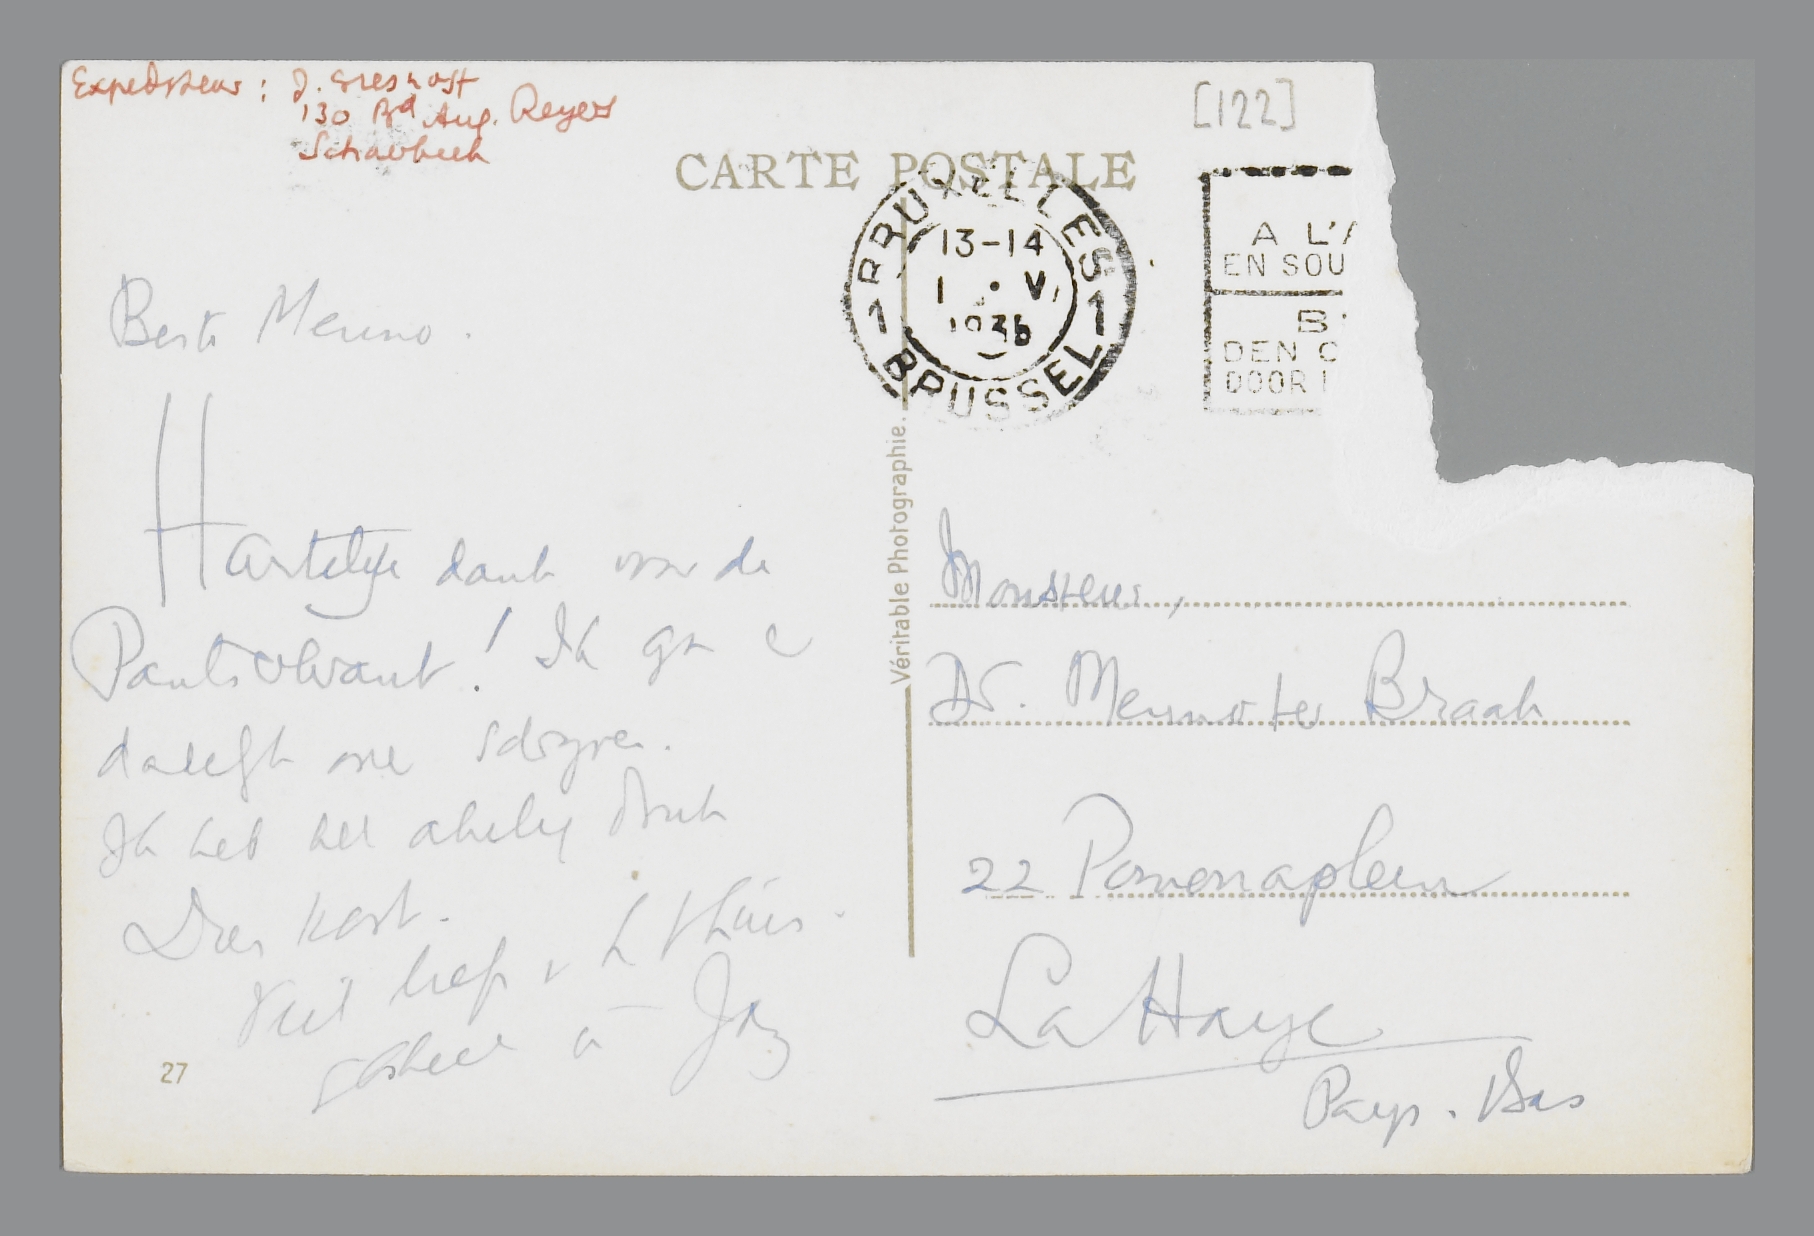 Expediteur : J. Greshoff
130 Bd Aug. Reyers
Schaerbeek
[122]
CARTE POSTALE
BRUXELLES
13-14
1 · V
1936
1 1
BRUSSEL
A L'A
EN SOU
B
DEN C
DOOR I
Véritable Photographie.
Beste Menno.
Hartelijk dank voor de
Pantserkrant! Ik ga e
dadelijk over schrijven.
Ik heb het akelig druk
Dries komt.
Veel liefs v h t huis
Jan
27
Monsieur,
Dr. Menno ter Braak
22 Pomonaplein
La Haye
Pays-Bas